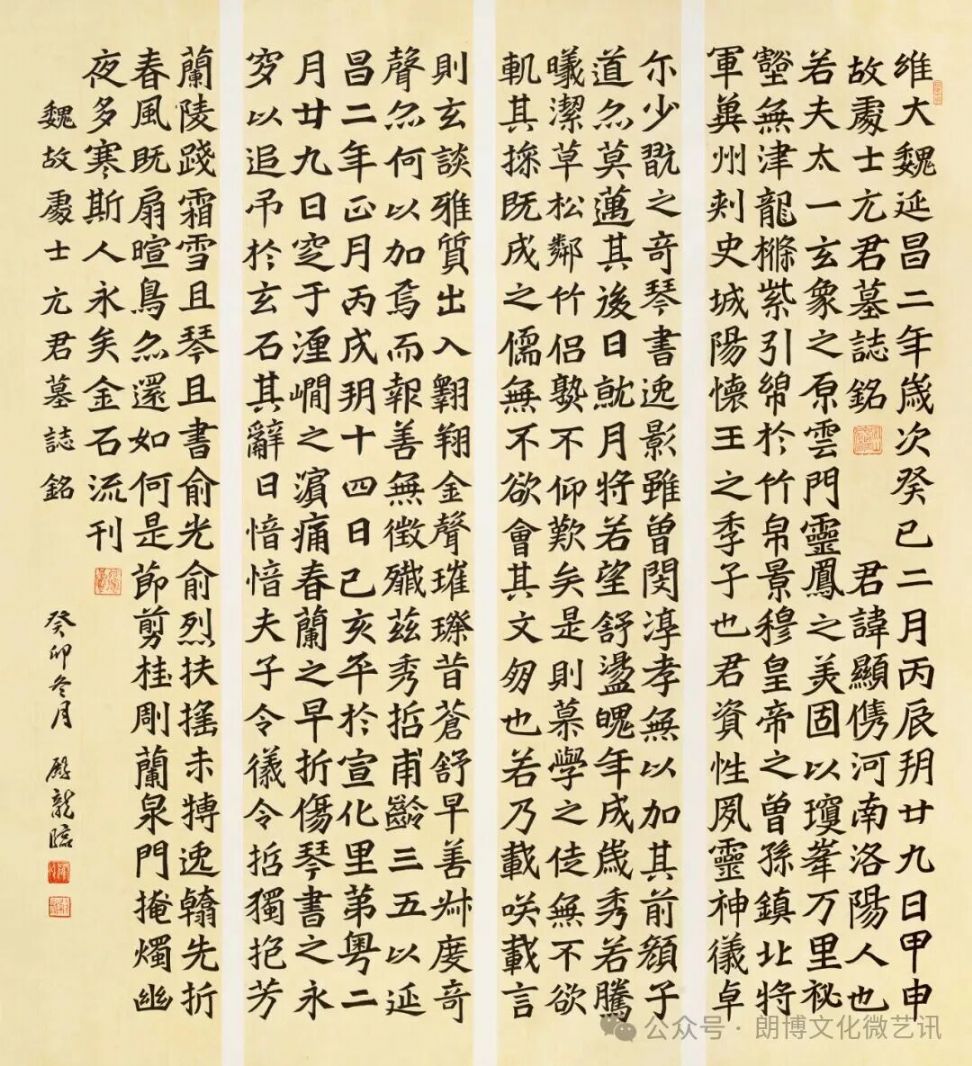 維大魏延昌二年歲次癸巳二月丙辰玥廿九日甲申
故處士元君墓誌銘 君諱顯儁河南洛陽人也
若夫太一玄象之原雲門靈鳳之美固以瓊峯万里秘
壑無津龍橃紫引綿於竹帛景穆皇帝之曾孫鎮北將
軍冀州刺史城陽懷王之季子也君資性夙靈神儀卓
尒少翫之奇琴書逸影雖曾閔淳孝無以加其前顏子
道亦莫邁其後日就月將若望舒盪魄年成歲秀若騰
曦潔草松鄰竹侶熟不仰歎矣是則慕學之徒無不欲
軌其操既成之儒無不欲會其文匆也若乃載咲載言
則玄談雅質出入翾翔金聲璀璨昔蒼舒早善艸度奇
聲亦何以加焉而報善無徵殲茲秀哲甫齡三五以延
昌二年正月丙戌玥十四日己亥卒於宣化里第粵二
月廿九日窆于湹㵎之濱痛春蘭之早折傷琴書之永
穸以追弔於玄石其辭曰愔愔夫子令儀令哲獨抱芳
蘭陵踐霜雪且琴且書俞光俞烈扶搖未摶逸翰先折
春風既扇暄鳥亦還如何是節剪桂彫蘭泉門掩燭幽
夜多寒斯人永矣金石流刊
魏故處士元君墓誌銘 癸卯冬月 龍臨
公众号 · 朗博文化微艺讯